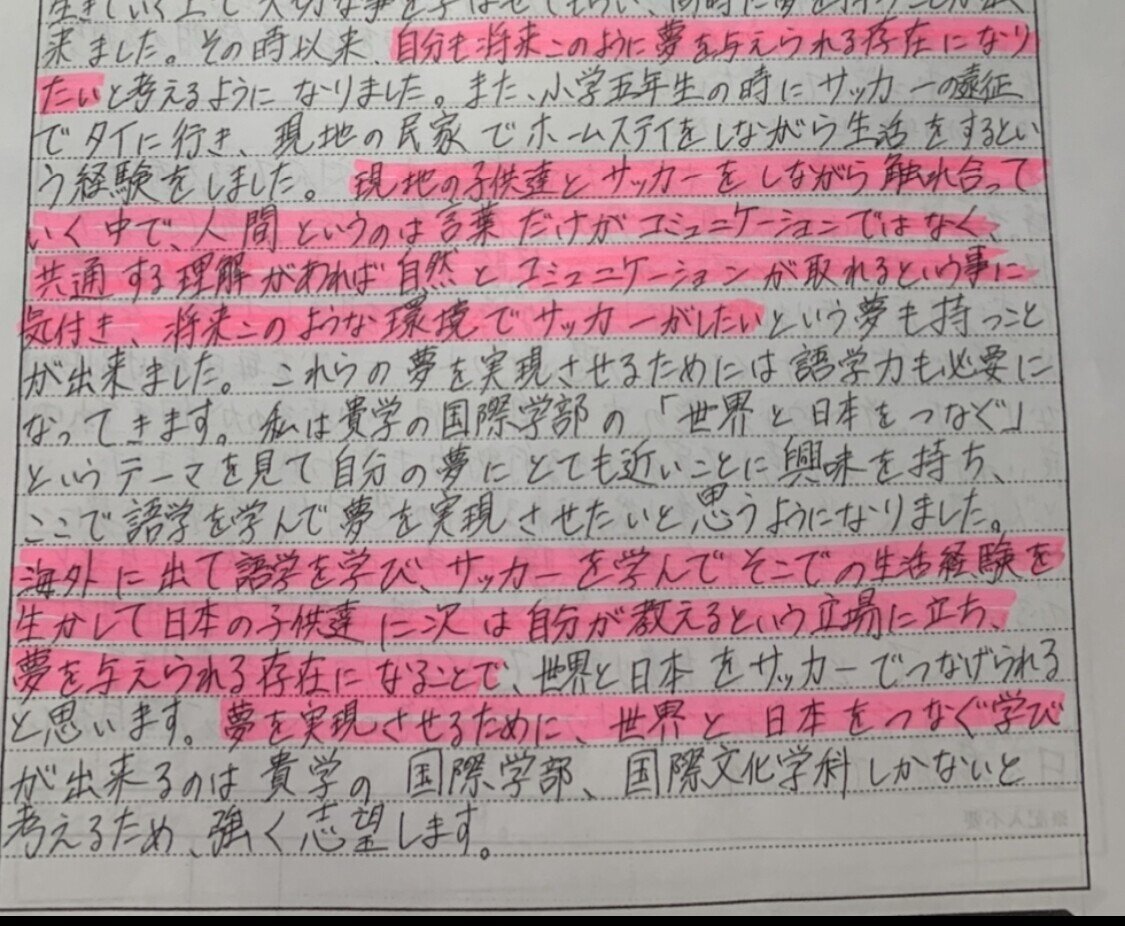 生きていく上で大切な事を学ばせてもらい、同時に夢を持つことが出
来ました。その時以来、自分も将来このように夢を与えられる存在になり
たいと考えるようになりました。また、小学五年生の時にサッカーの遠征
でタイに行き、現地の民家でホームステイをしながら生活をするとい
う経験をしました。現地の子供達とサッカーをしながら触れ合って
いく中で、人間というのは言葉だけがコミュニケーションではなく、
共通する理解があれば自然とコミュニケーションが取れるという事に
気付き、将来このような環境でサッカーがしたいという夢も持つこと
が出来ました。これらの夢を実現させるためには語学力も必要に
なってきます。私は貴学の国際学部の「世界と日本をつなぐ」
というテーマを見て自分の夢にとても近いことに興味を持ち、
ここで語学を学んで夢を実現させたいと思うようになりました。
海外に出て語学を学び、サッカーを学んでそこでの生活経験を
生かして日本の子供達に次は自分が教えるという立場に立ち、
夢を与えられる存在になることで、世界と日本をサッカーでつなげられる
と思います。夢を実現させるために、世界と日本をつなぐ学び
が出来るのは貴学の国際学部、国際文化学科しかないと
考えるため、強く志望します。
※記入不要